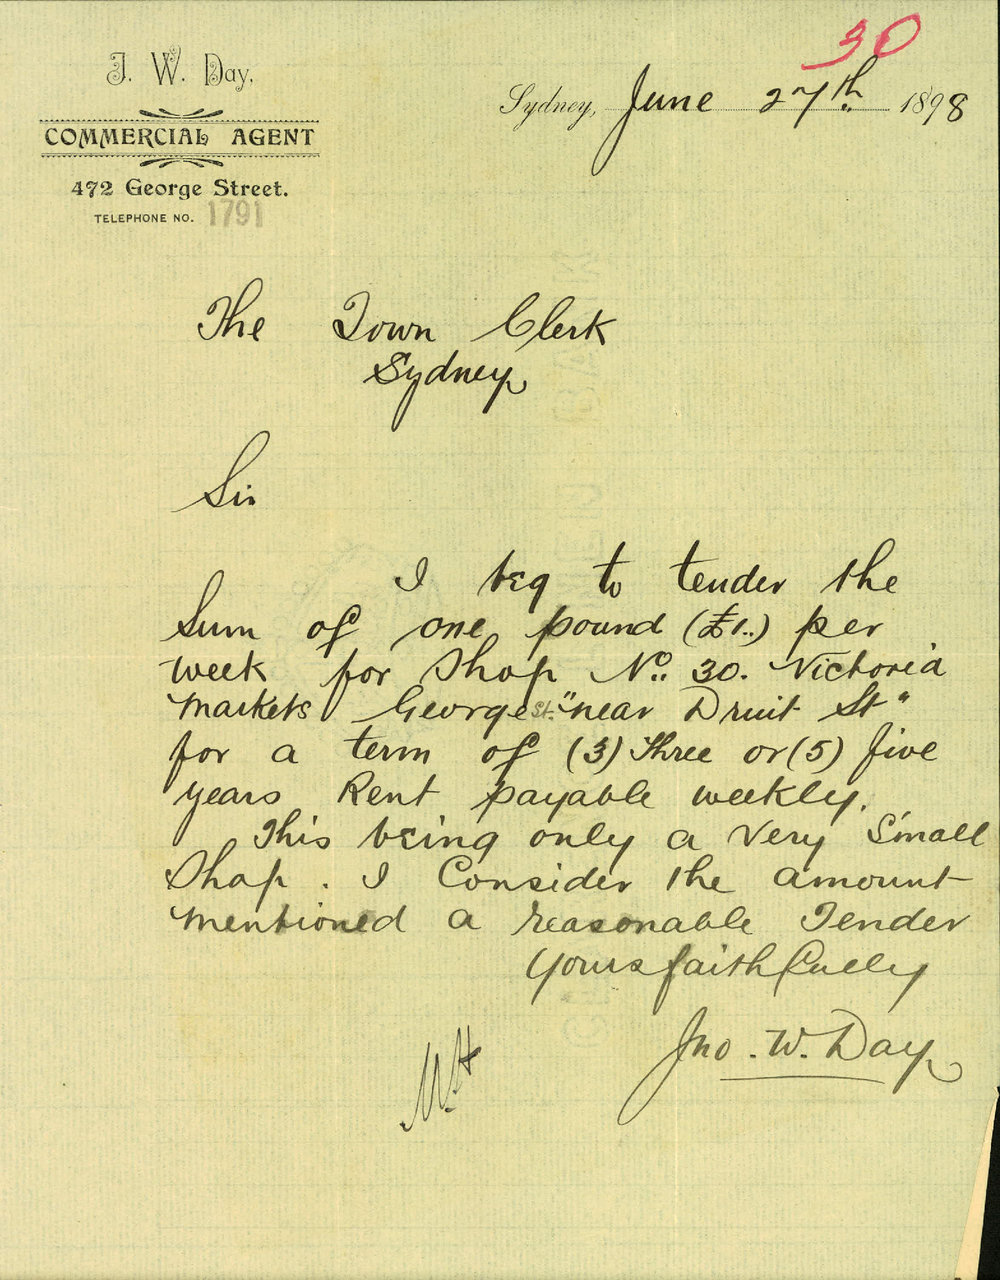 30
J. W. Day.
COMMERCIAL AGENT
472 George Street.
TELEPHONE NO. 1791
Sydney, June 27th 1898
The Town Clerk
Sydney
Sir
I beg to tender the
Sum of one pound (£1..) per
week for Shop No. 30. Victoria
Markets George St. "near Druit St"
for a term of (3) Three or (5) five
years Rent payable weekly.
This being only a very Small
Shop. I Consider the amount
mentioned a reasonable Tender
Yours faithfully
Jno. W. Day